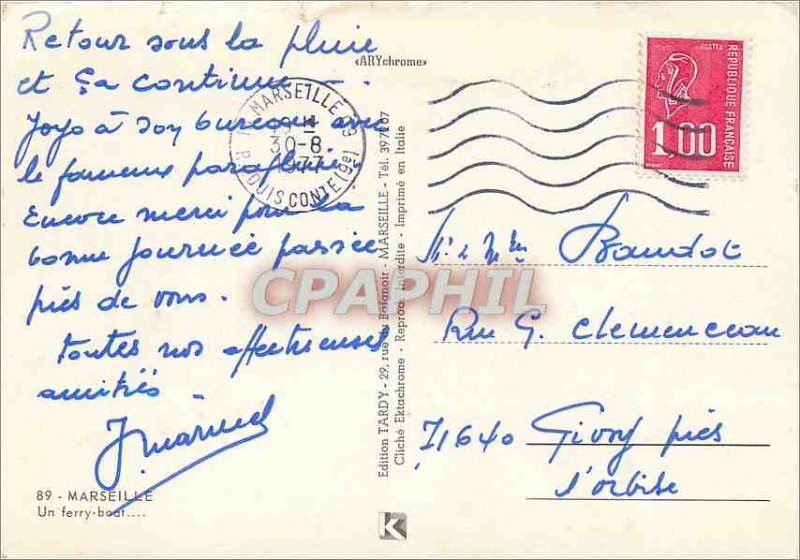 Retour sous la pluie
et ça continue -
Jojo à son bureau avec
le fameux parapluie,
Encore merci pour la
bonne journée passée
près de vous.
toutes nos affectueuses
amitiés -
89 - MARSEILLE
Un ferry-boat....
«ARYchrome»
MARSEILLE 09
19 H
30-8
1977
R. LOUIS CONTE (9e)
Edition TARDY - 29, rue du Baignoir - MARSEILLE - Tél. 397207
Cliché Ektachrome - Reprod. Interdite - Imprimé en Italie
CPAPHIL
K
POSTES
RÉPUBLIQUE FRANÇAISE
1,00
Baudot
Rue G. Clemenceau
71640 Givry près
l'orbise